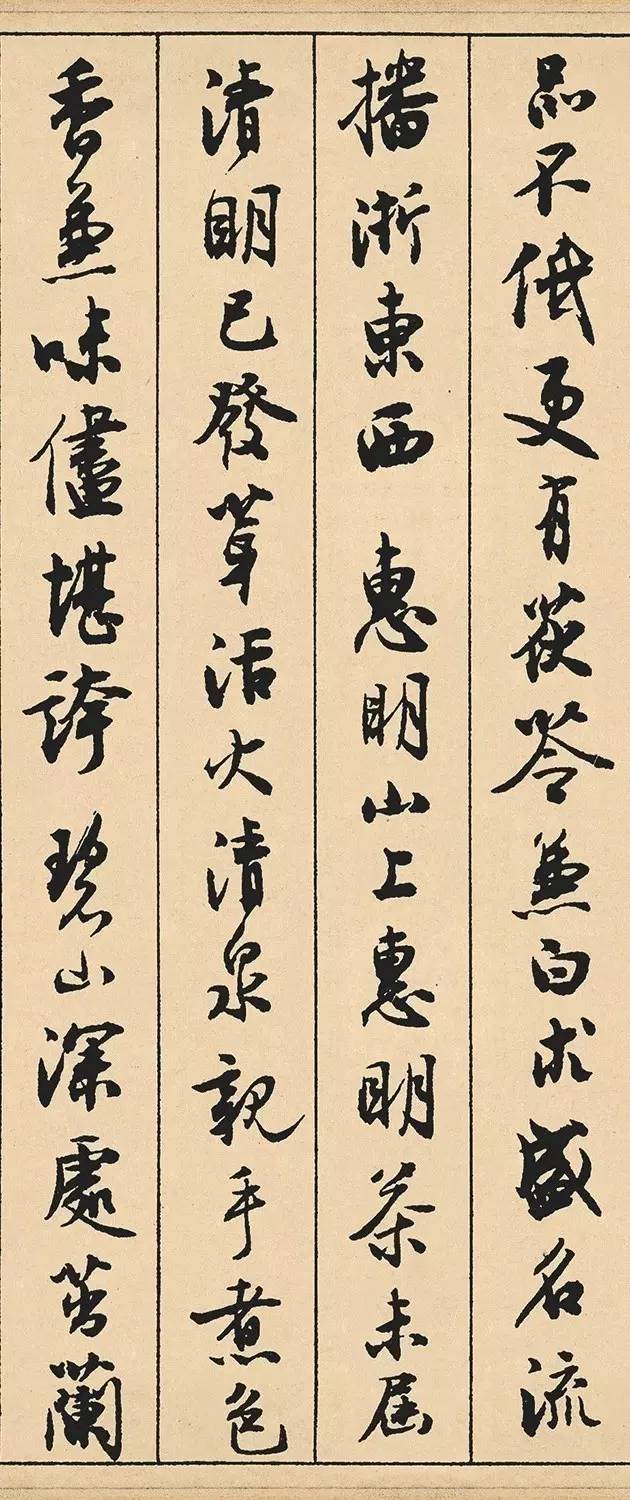 品不低更有茯苓兼白朮盛名流
播浙東西 惠明山上惠明茶未屆
清明已發芽活火清泉親手煮色
香兼味儘堪誇 碧山深處蘭